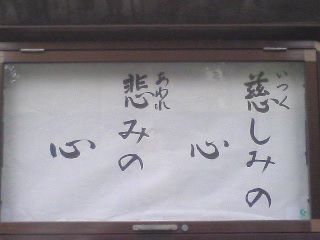 慈しみの
いつく
心
悲みの
あわれ
心